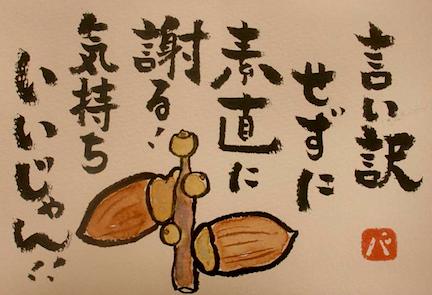 言い訳
せずに
素直に
謝る！
気持ち
いいじゃん！！
パ